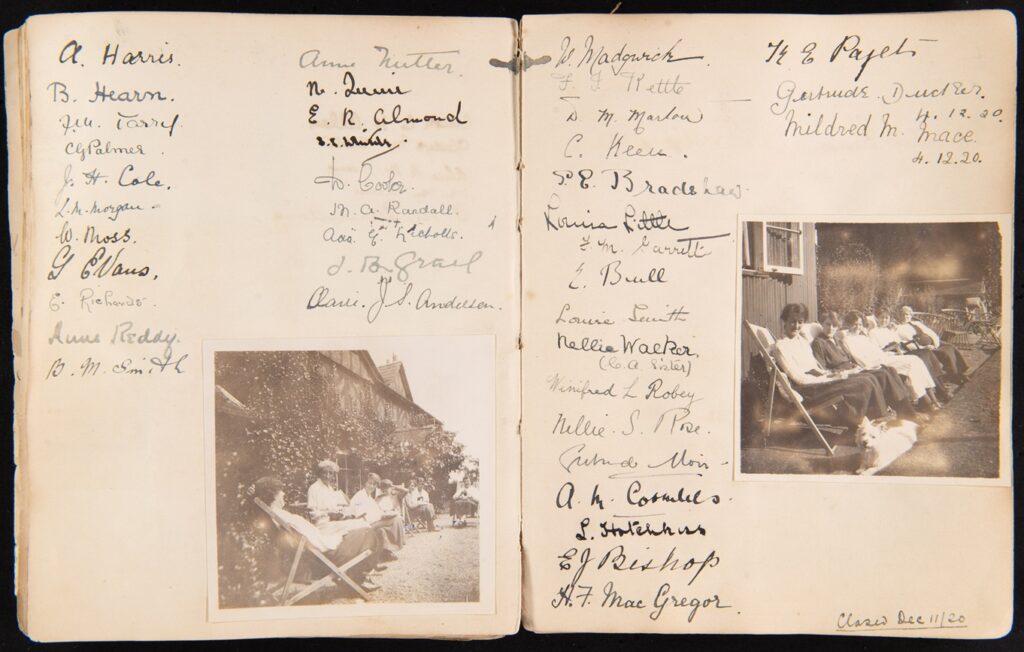 A. Harris.
B. Hearn.
CG Palmer.
J. H. Cole.
L. M. Morgan.
W. Moss.
G Evans.
E. Richards.
Anne Reddy.
B. M. Smith
Anne
N.
E. R. Almond
M. A. Randall.
E. Nicholls.
J. S. Andersen.
W. Madgwick.
F. F. Kettle
D M. Marlow
C. Keen.
E. Bradshaw
Louisa
F. M. Garrett
E. Bull
Louise Smith
Nellie Walker.
(C.A. Sister)
Winifred L Robey
Nellie. S. Rose.
Gertrude Moir.
A. M. Coombes.
L. Hotchkiss
E J Bishop
H. F. MacGregor.
K E Paget
Gertrude. Ducker.
4. 12. 20.
Mildred M. Mace.
4. 12. 20.
Closed Dec 11/20